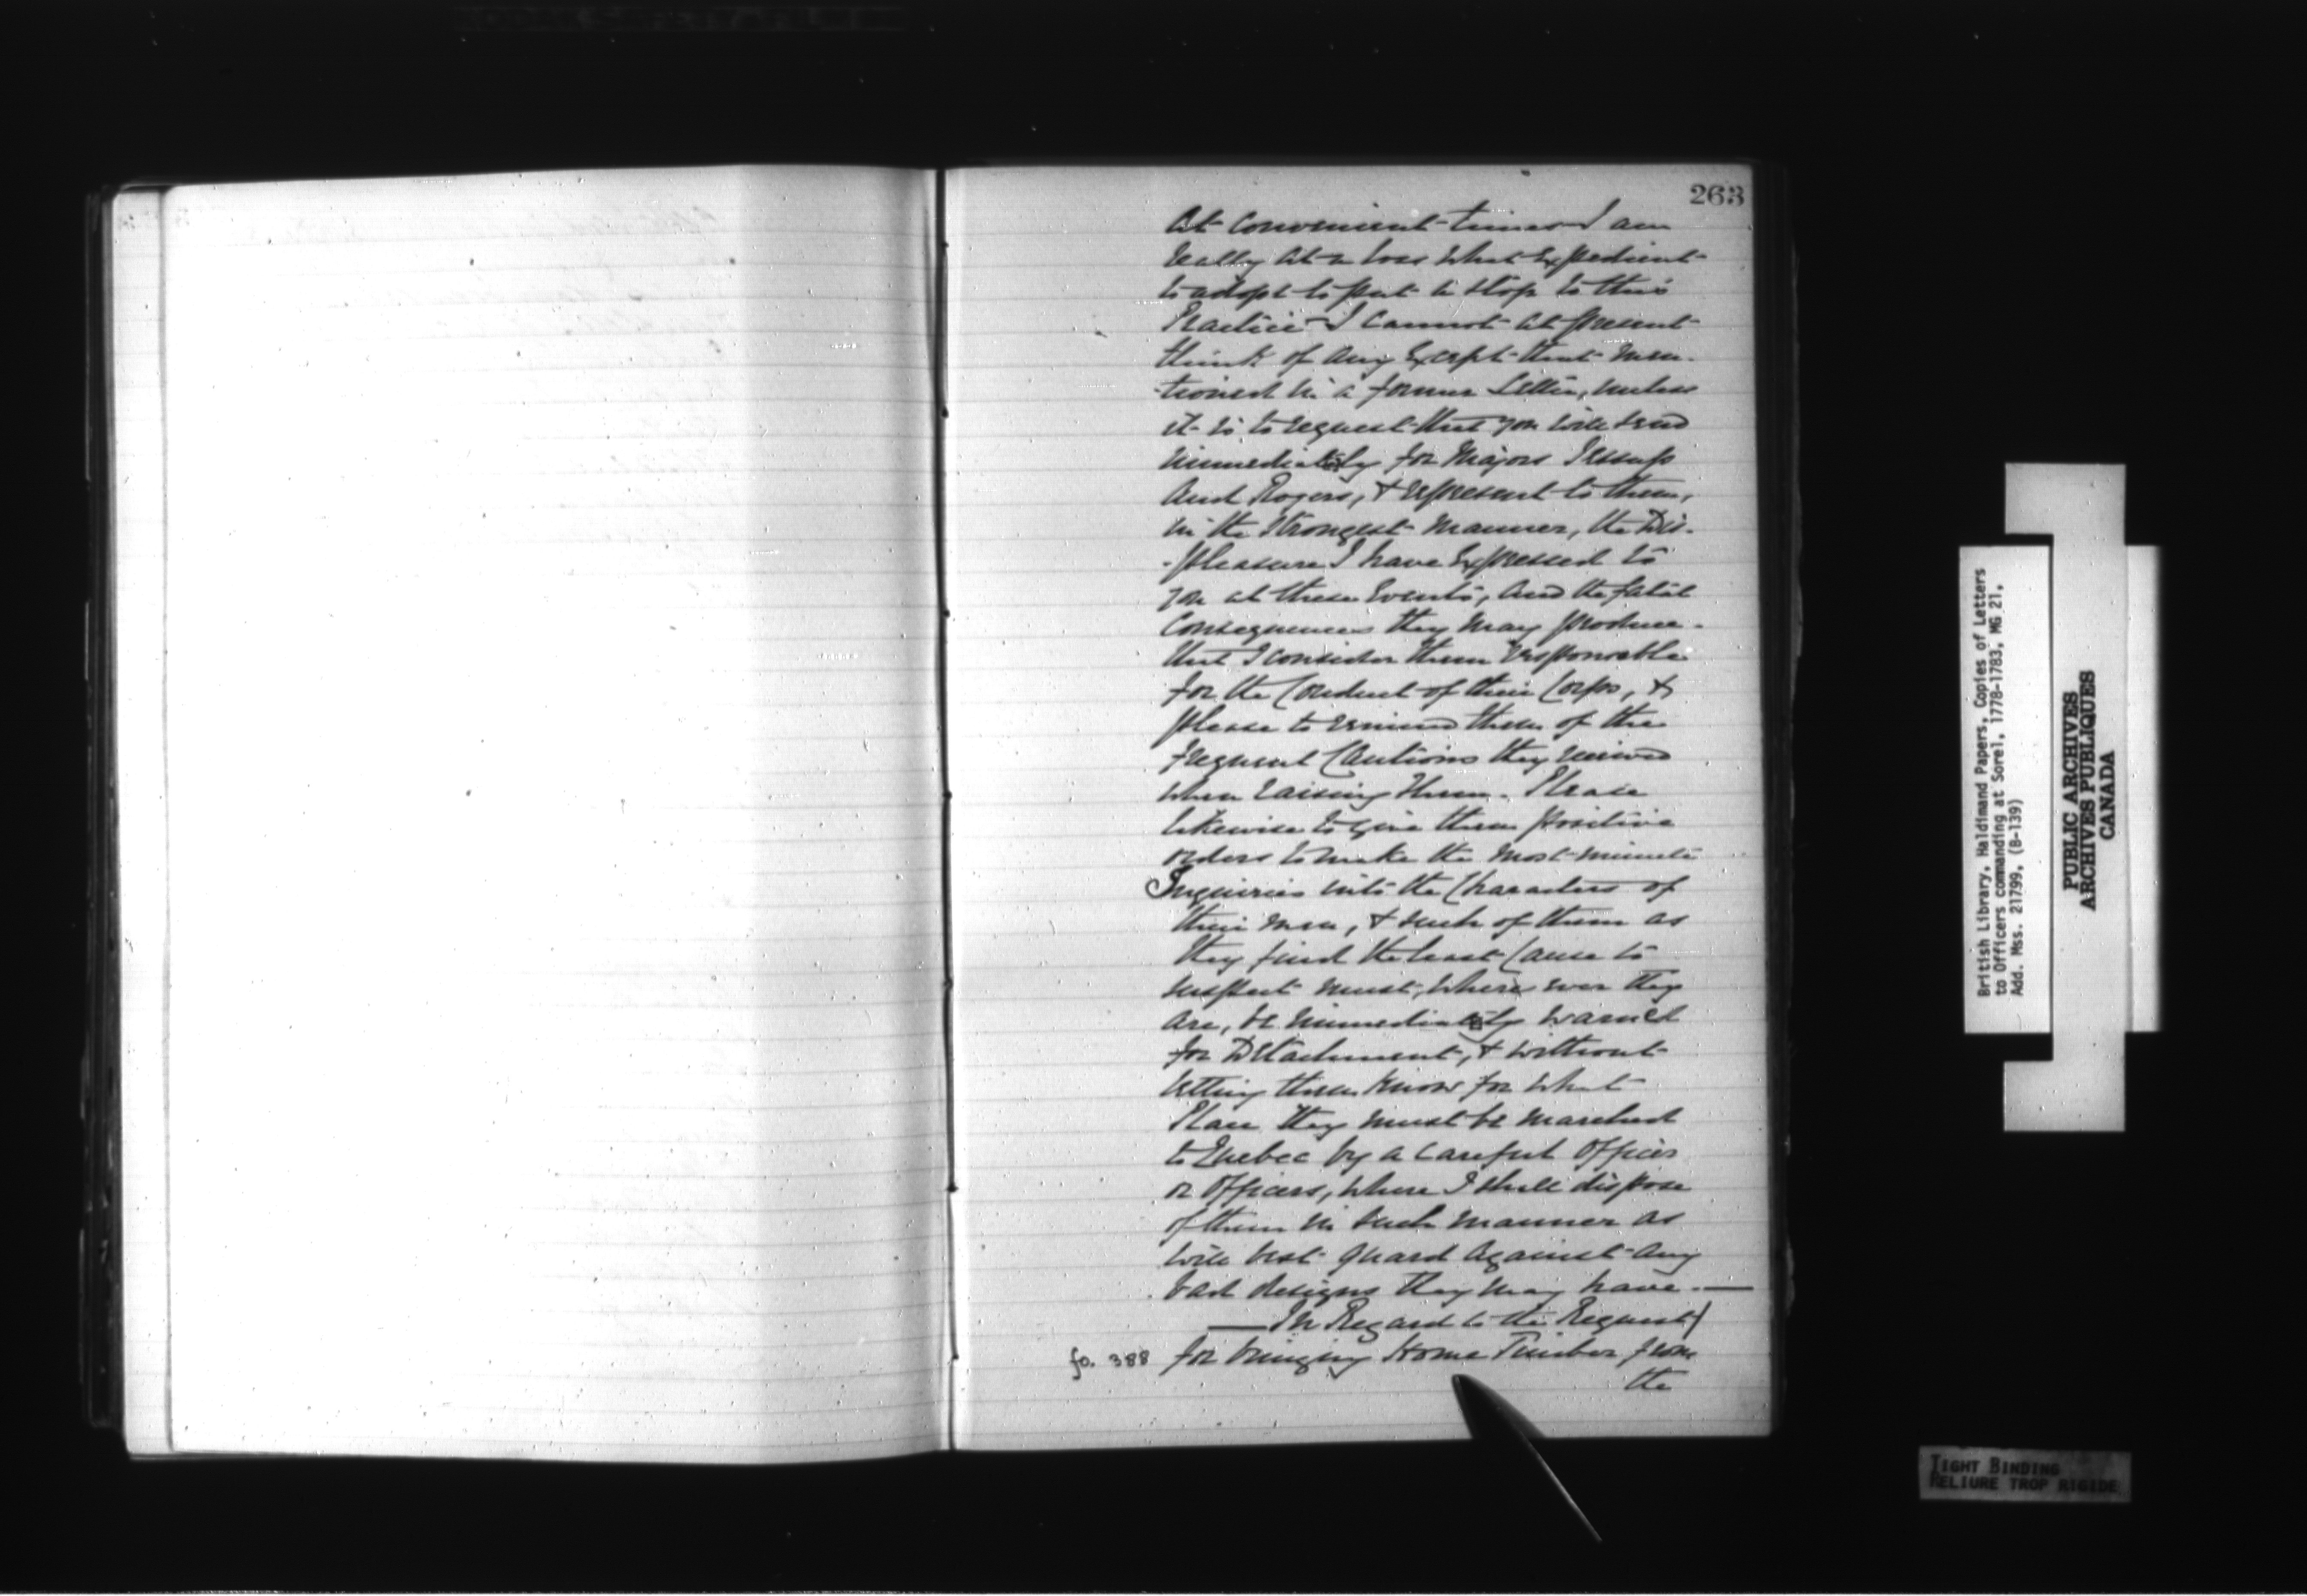 263
At convenient times I am
really at a loss what Expedient
to adopt to put a stop to this
Practice I cannot at present
think of any Except that men-
-tioned in a former Letter, unless
it is to request that you will send
immediately for Majors Jessup
And Rogers, & represent to them,
in the strongest manner, the Dis-
-pleasure I have Expressed to
you at these Events, and the fatal
Consequences they may produce -
that I consider them responsable
for the Conduct of their Corps, &
please to remind them of the
frequent Cautions they received
when raising them. Please
likewise to give them positive
orders to make the most minute
Inquiries into the Characters of
their men, & such of them as
they find the least Cause to
suspect must, where ever they
are, be immediately warned
for Detachment, & without
letting them know for what
Place they must be marched
to Quebec by a careful officer
or officers, where I shall dispose
of them in such manner as
will best guard against any
bad designs they may have. —
— In Regard to the Request
fo. 388 for bringing Home Timber from
the
British Library, Haldimand Papers, Copies of Letters
to Officers commanding at Sorel, 1778-1783, MG 21,
Add. Mss. 21799, (B-139)
PUBLIC ARCHIVES
ARCHIVES PUBLIQUES
CANADA
TIGHT BINDING
RELIURE TROP RIGIDE